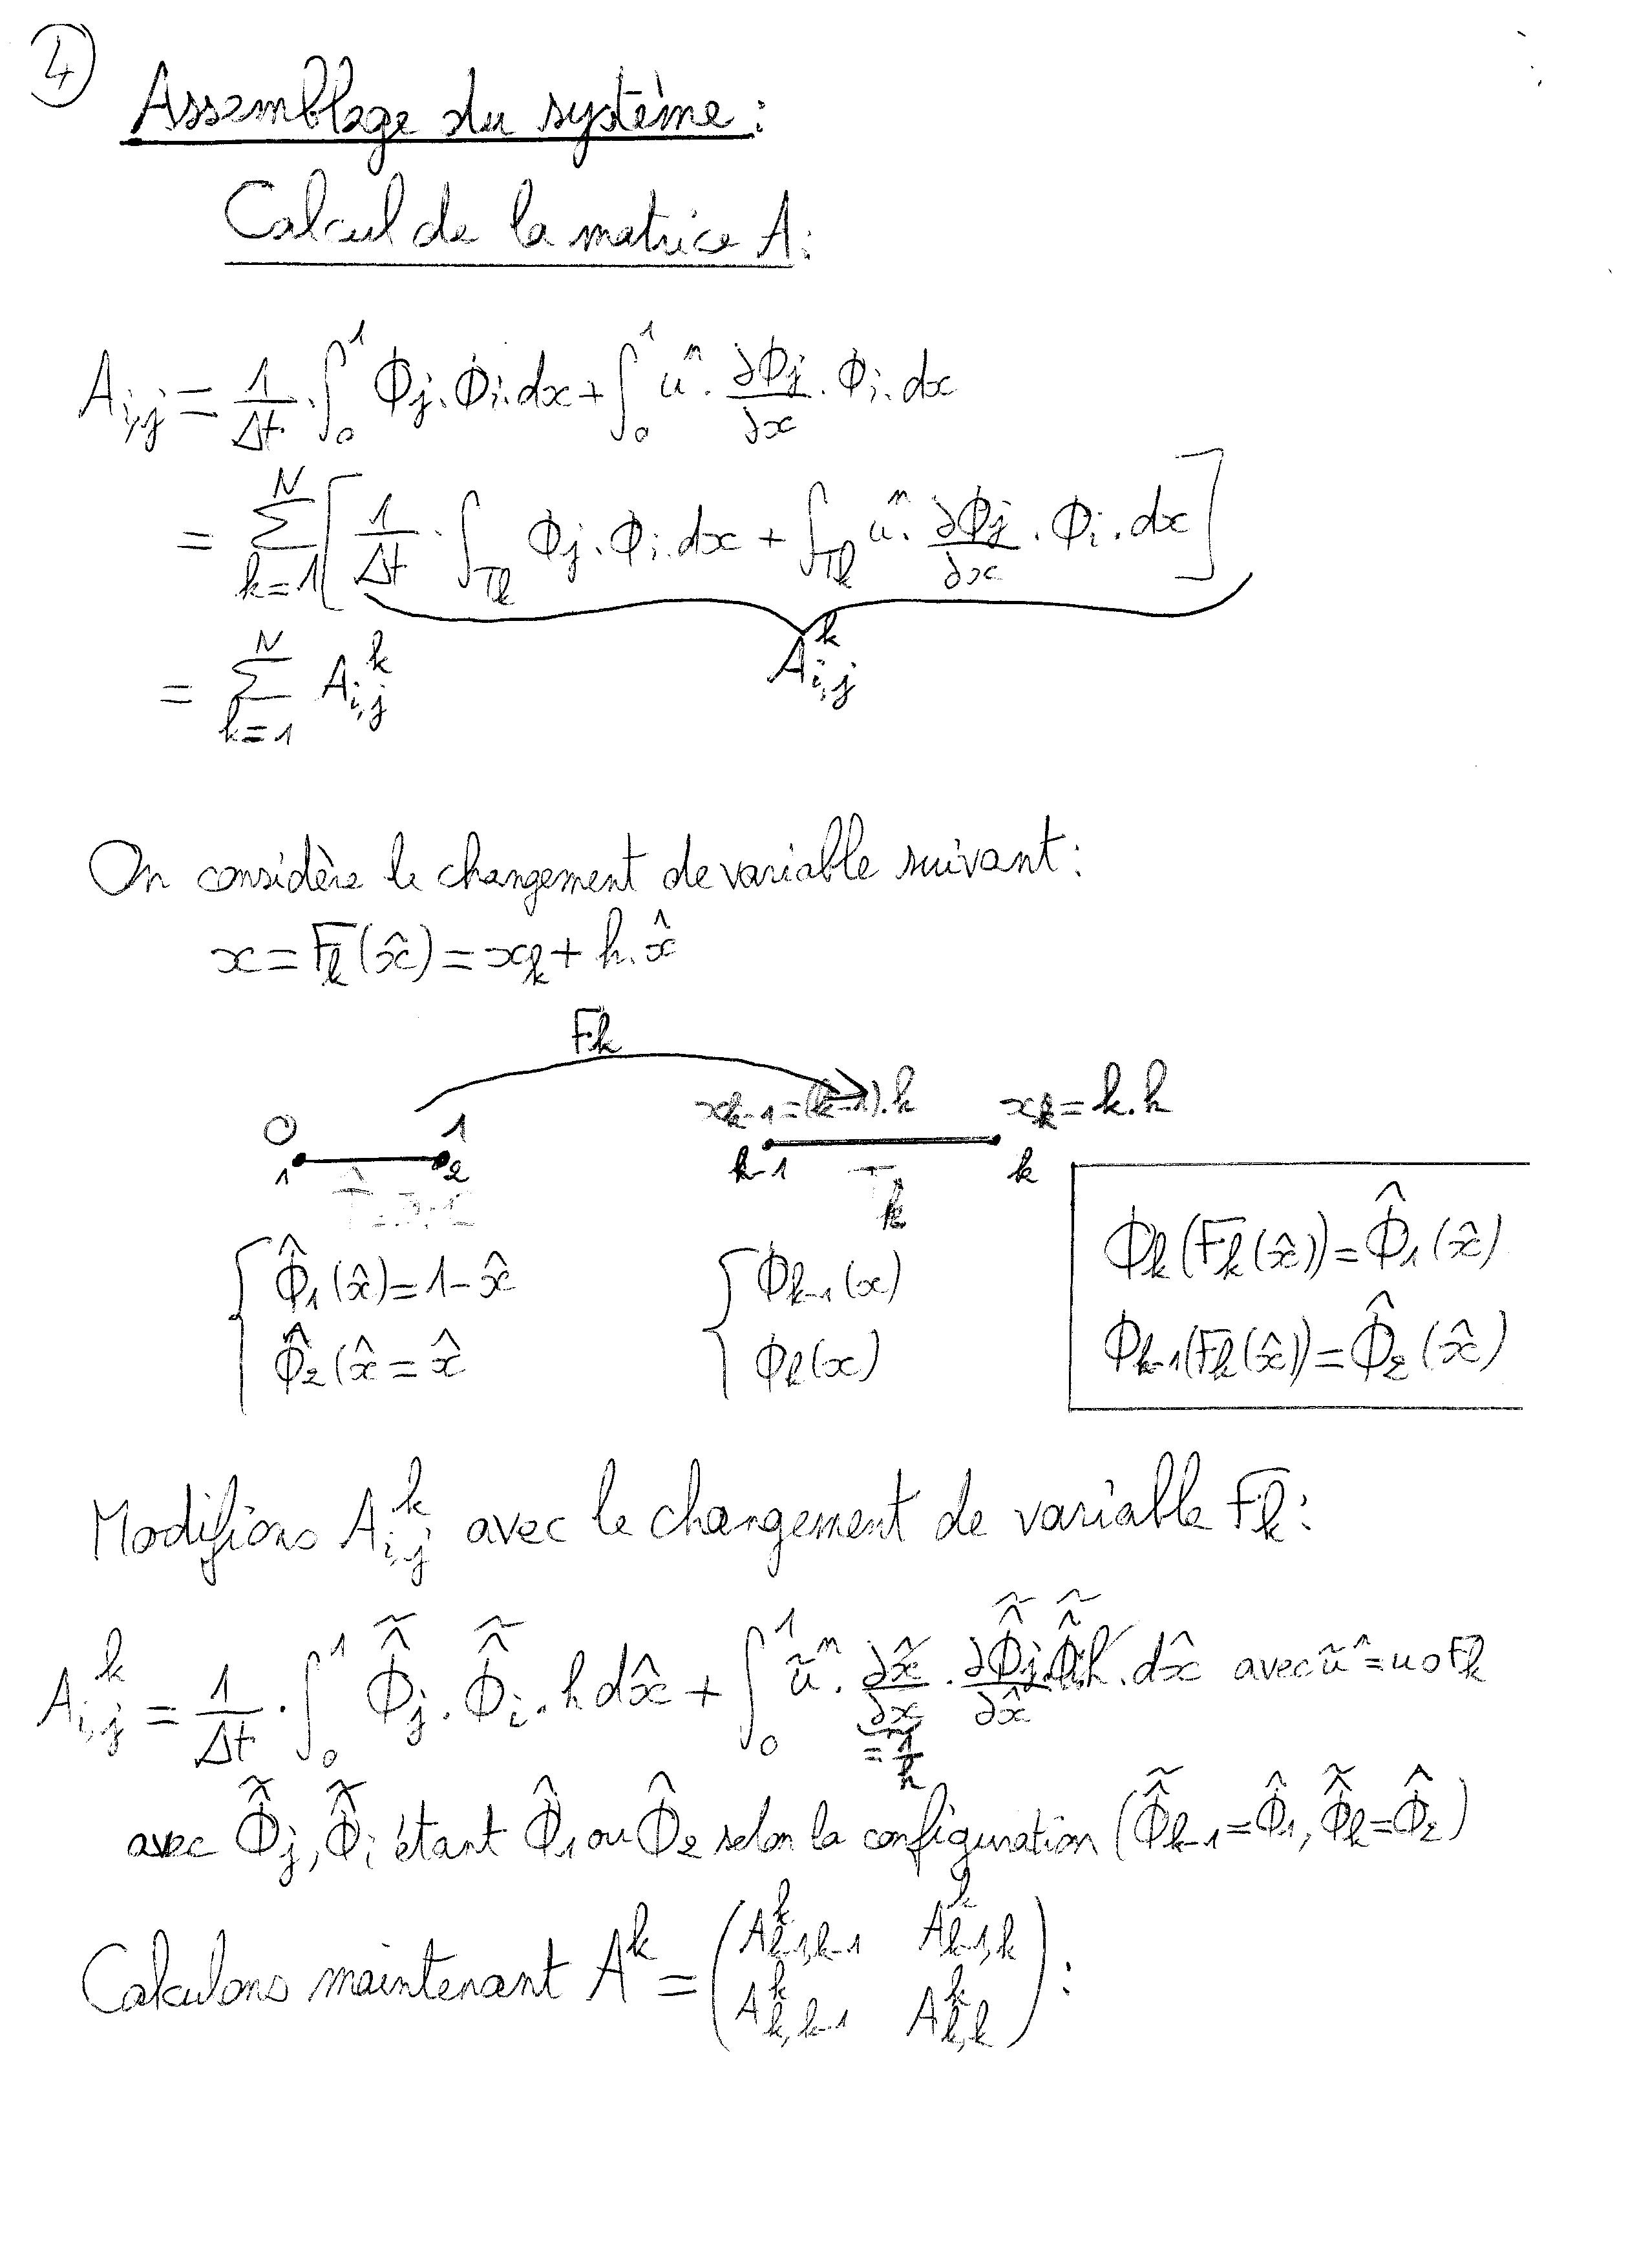 4
Assemblage du système :
Calcul de la matrice A :
A_{i,j} = \frac{1}{Δt} . ∫_0^1 Φ_j . Φ_i . dx + ∫_0^1 u^n . \frac{∂Φ_j}{∂x} . Φ_i . dx
= \sum_{k=1}^{N} [ \frac{1}{Δt} . ∫_{T_k} Φ_j . Φ_i . dx + ∫_{T_k} u^n . \frac{∂Φ_j}{∂x} . Φ_i . dx ]
A_{i,j}^k
= \sum_{k=1}^{N} A_{i,j}^k
On considère le changement de variable suivant :
x = F_k(x̂) = x_k + h.x̂
F_k
0 1 x_{k-1} = (k-1).h x_k = k.h
1 2 k-1 T_k k
Φ̂_1(x̂) = 1 - x̂ Φ_{k-1}(x) Φ_k(F_k(x̂)) = Φ̂_1(x̂)
Φ̂_2(x̂ = x̂ Φ_k(x) Φ_{k-1}(F_k(x̂)) = Φ̂_2(x̂)
Modifions A_{i,j}^k avec le changement de variable F_k :
A_{i,j}^k = \frac{1}{Δt} . ∫_0^1 \tilde{Φ̂}_j . \tilde{Φ̂}_i . h dx̂ + ∫_0^1 ũ^n . \frac{∂x̂}{∂x} . \frac{∂\tilde{Φ̂}_j}{∂x̂} . \tilde{Φ̂}_i . h . dx̂ avec ũ^n = u o F_k
= \frac{1}{h}
avec \tilde{Φ̂}_j, \tilde{Φ̂}_i étant Φ̂_1 ou Φ̂_2 selon la configuration (\tilde{Φ̂}_{k-1} = Φ̂_1, \tilde{Φ̂}_k = Φ̂_2)
Calculons maintenant A^k = ( A_{k-1,k-1}^k A_{k-1,k}^k
A_{k,k-1}^k A_{k,k}^k ) :